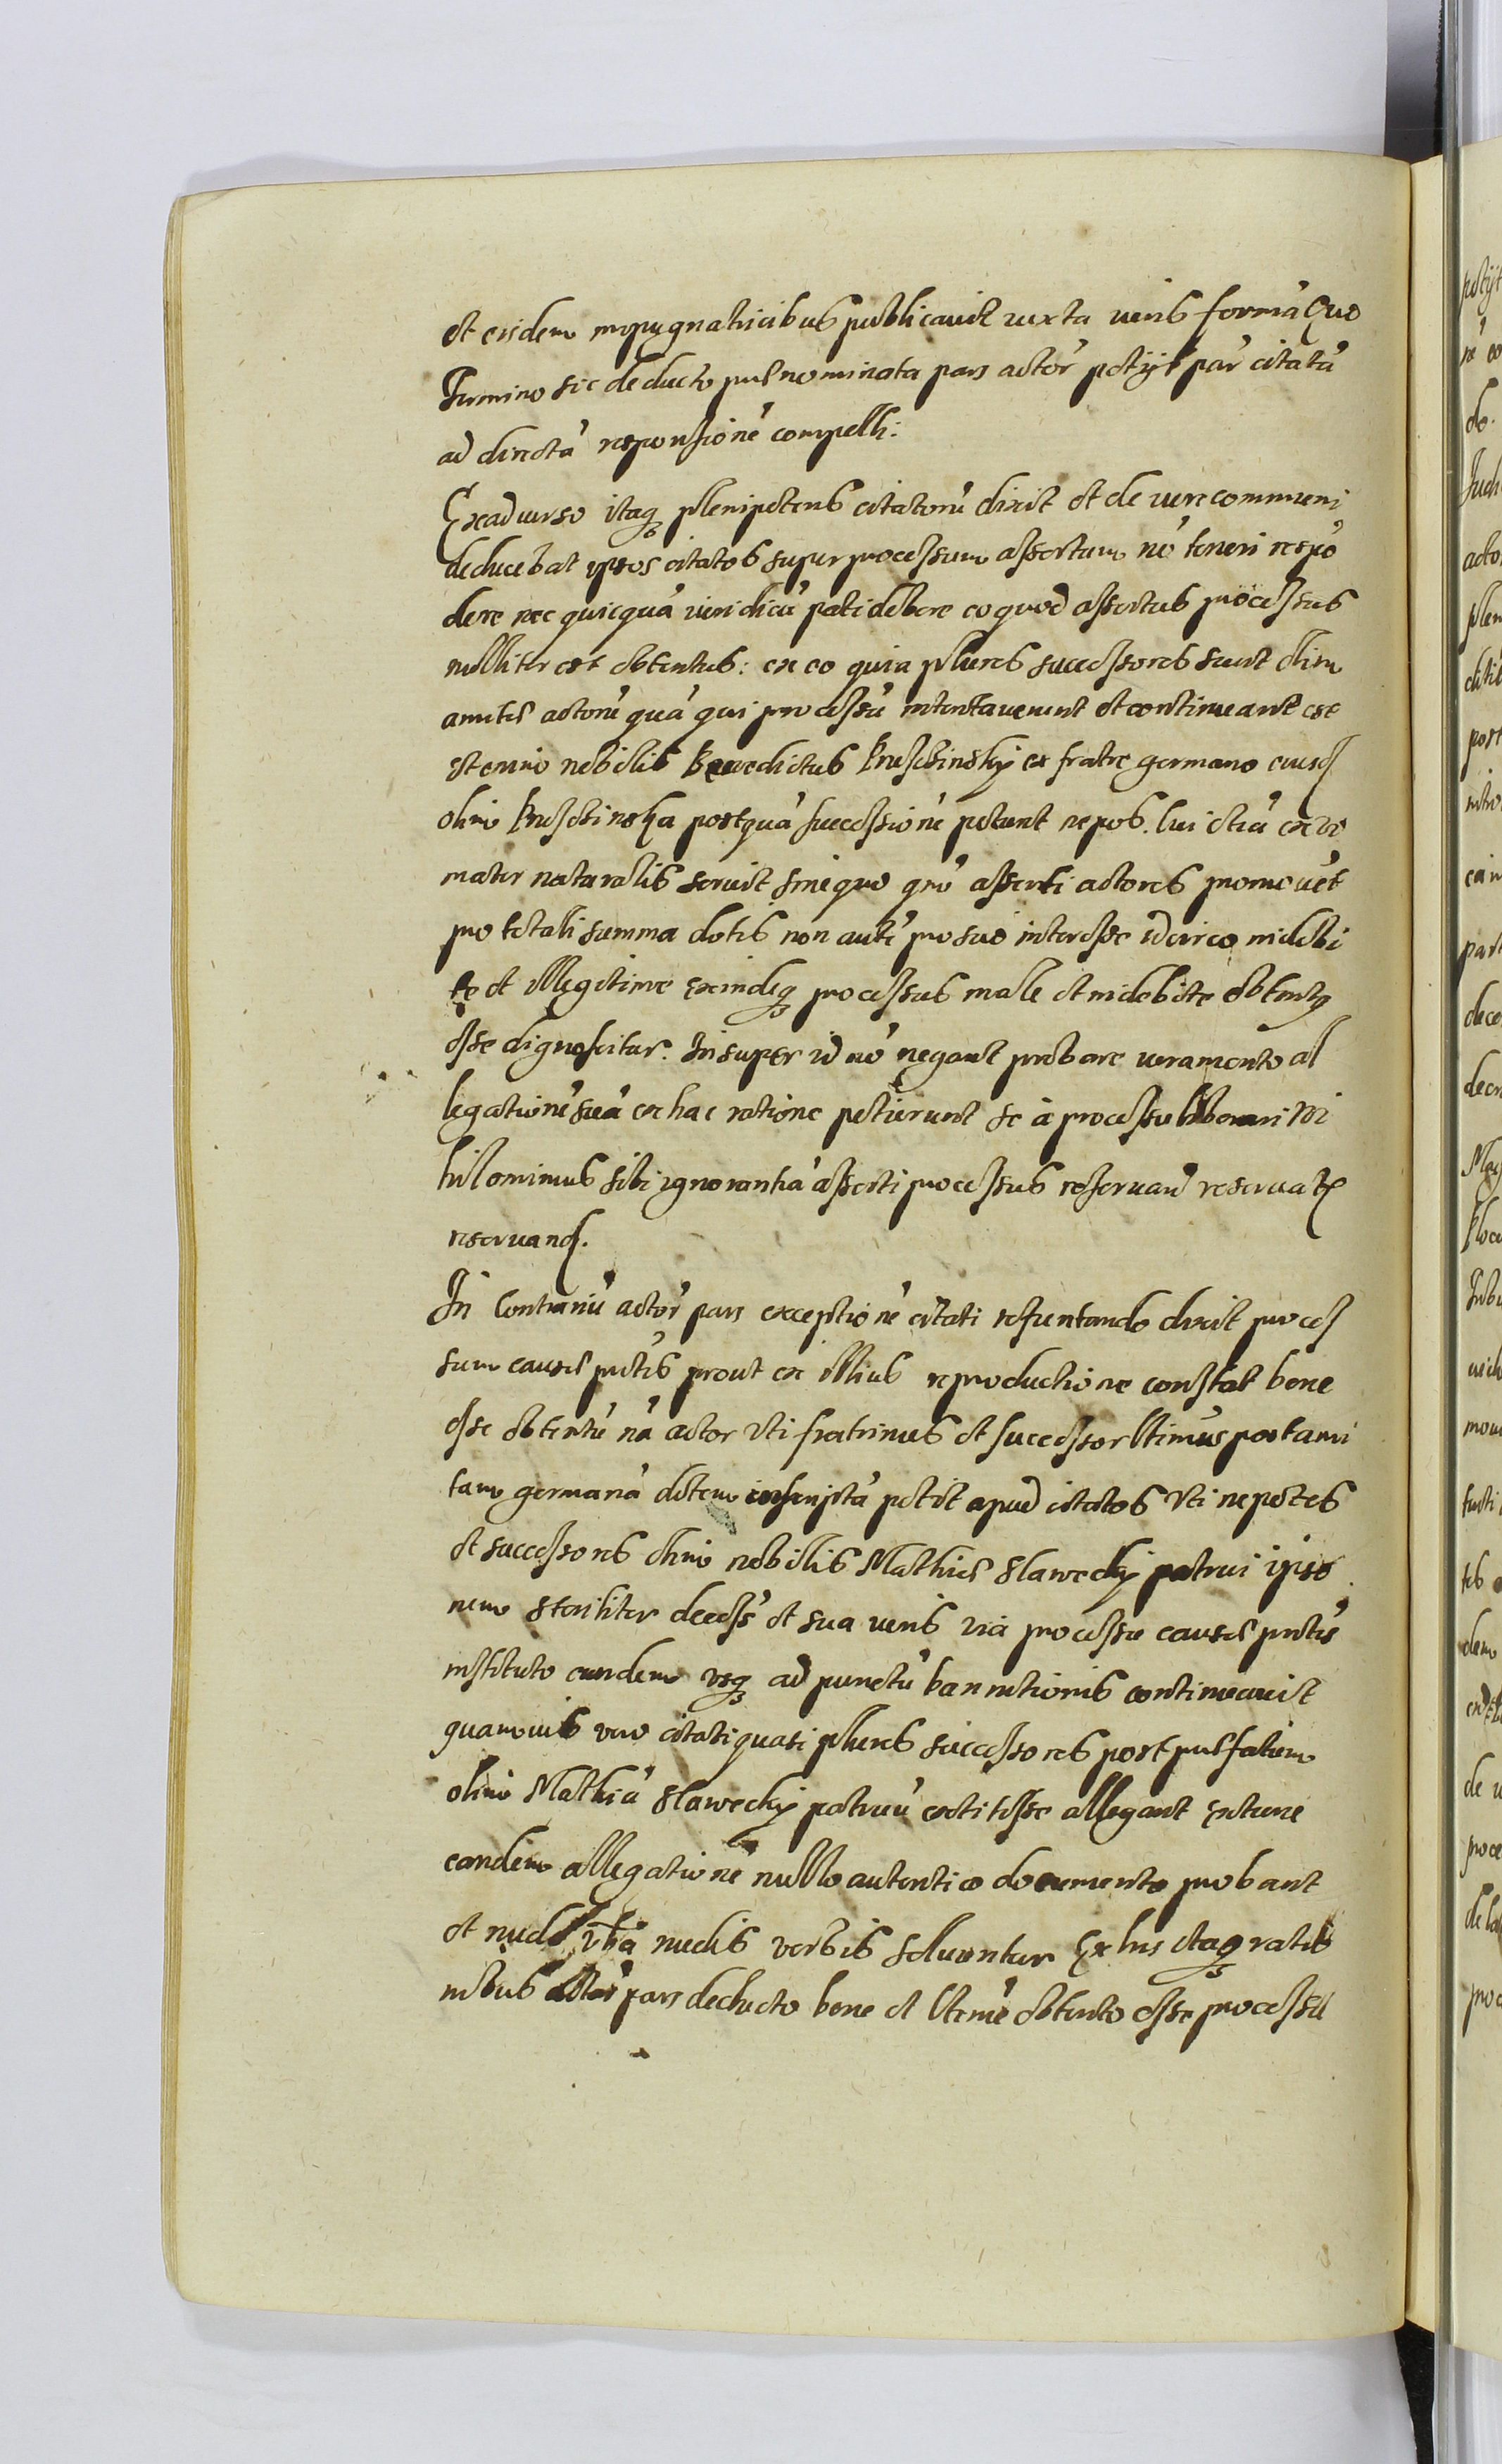 et eisdem impugnatricibus publicavit iuxta iuris formã Quo
Termino sic deducto pulsnominata pars actor̃ petijt par̃ citatũ
ad directã responsionẽ compelli:
Ex adverso itaq plenipotens citatorũ dixit et de iure communi
deducebat ipsos citatos super processum assertum nõ teneri respõ
dere nec quicquã iuridicũ pati debere eo quod assertus processus
nulliter est obtentus: ex eo quia plures successores sunt olim
amitæ actorũ quã qui processũ intentaverunt et continuant est
etenim nobilis Benedictus Kruschinsky ex fratre germano eiusd
olim Kruschinska post quã successionẽ petunt nepos. cui etiã
mater naturalis servit sine quo asserti actores promovẽt
pro totali summa dotis non autẽ pro suo interesse idcirco indebi
te et illegitime exindeq processus male et indebite obtentq
esse dignoscitur. Insuper id nõ negant probare iuramento al
legationẽ suã ex hac ratione petierunt se à processu liberari Ni
hilominus sibi ignorantiã asserti processus reservand reservatq
reservand.
In Contrariũ actor̃ pars exceptionẽ citati refuntando dixit proces
sum causæ pñtis prout ex illius reproductione constat bene
esse obtentũ nã actor Uti fratrinus et successor ltimus post ami
tam germanã dotem inscriptã petit apud citatos Uti nepotes
et successores olim nobilis Mathiæ Slawecky patrui ipso
rum steriliter decess̃ et sua iuris via processu causæ pñtis
instituto eundem usq ad punctũ bannitionis continuavit
quamvis vero citati quasi plures successores post pulsatum
olim Mathiã Slawecky patruũ extitisse allegant Extunc
eandem allegationẽ nullo autentico documento probant
et nuda vba nudis verbis solvuntur Ex his itaq ratio
nibus actor̃ pars deducto bene et ltimẽ obtento esse processu